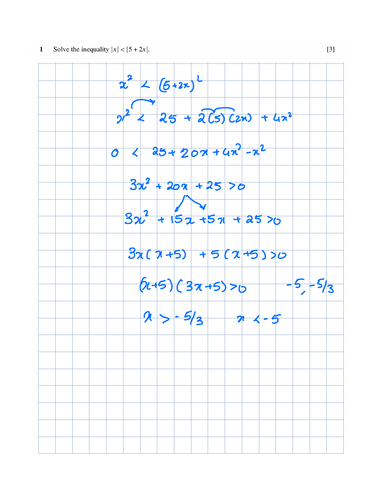 1 Solve the inequality |x| < |5 + 2x|. [3]
x² < (5+2x)²
x² < 25 + 2(5)(2x) + 4x²
0 < 25 + 20x + 4x² - x²
3x² + 20x + 25 > 0
3x² + 15x + 5x + 25 > 0
3x(x+5) + 5(x+5) > 0
(x+5)(3x+5) > 0 -5, -5/3
x > -5/3 x < -5